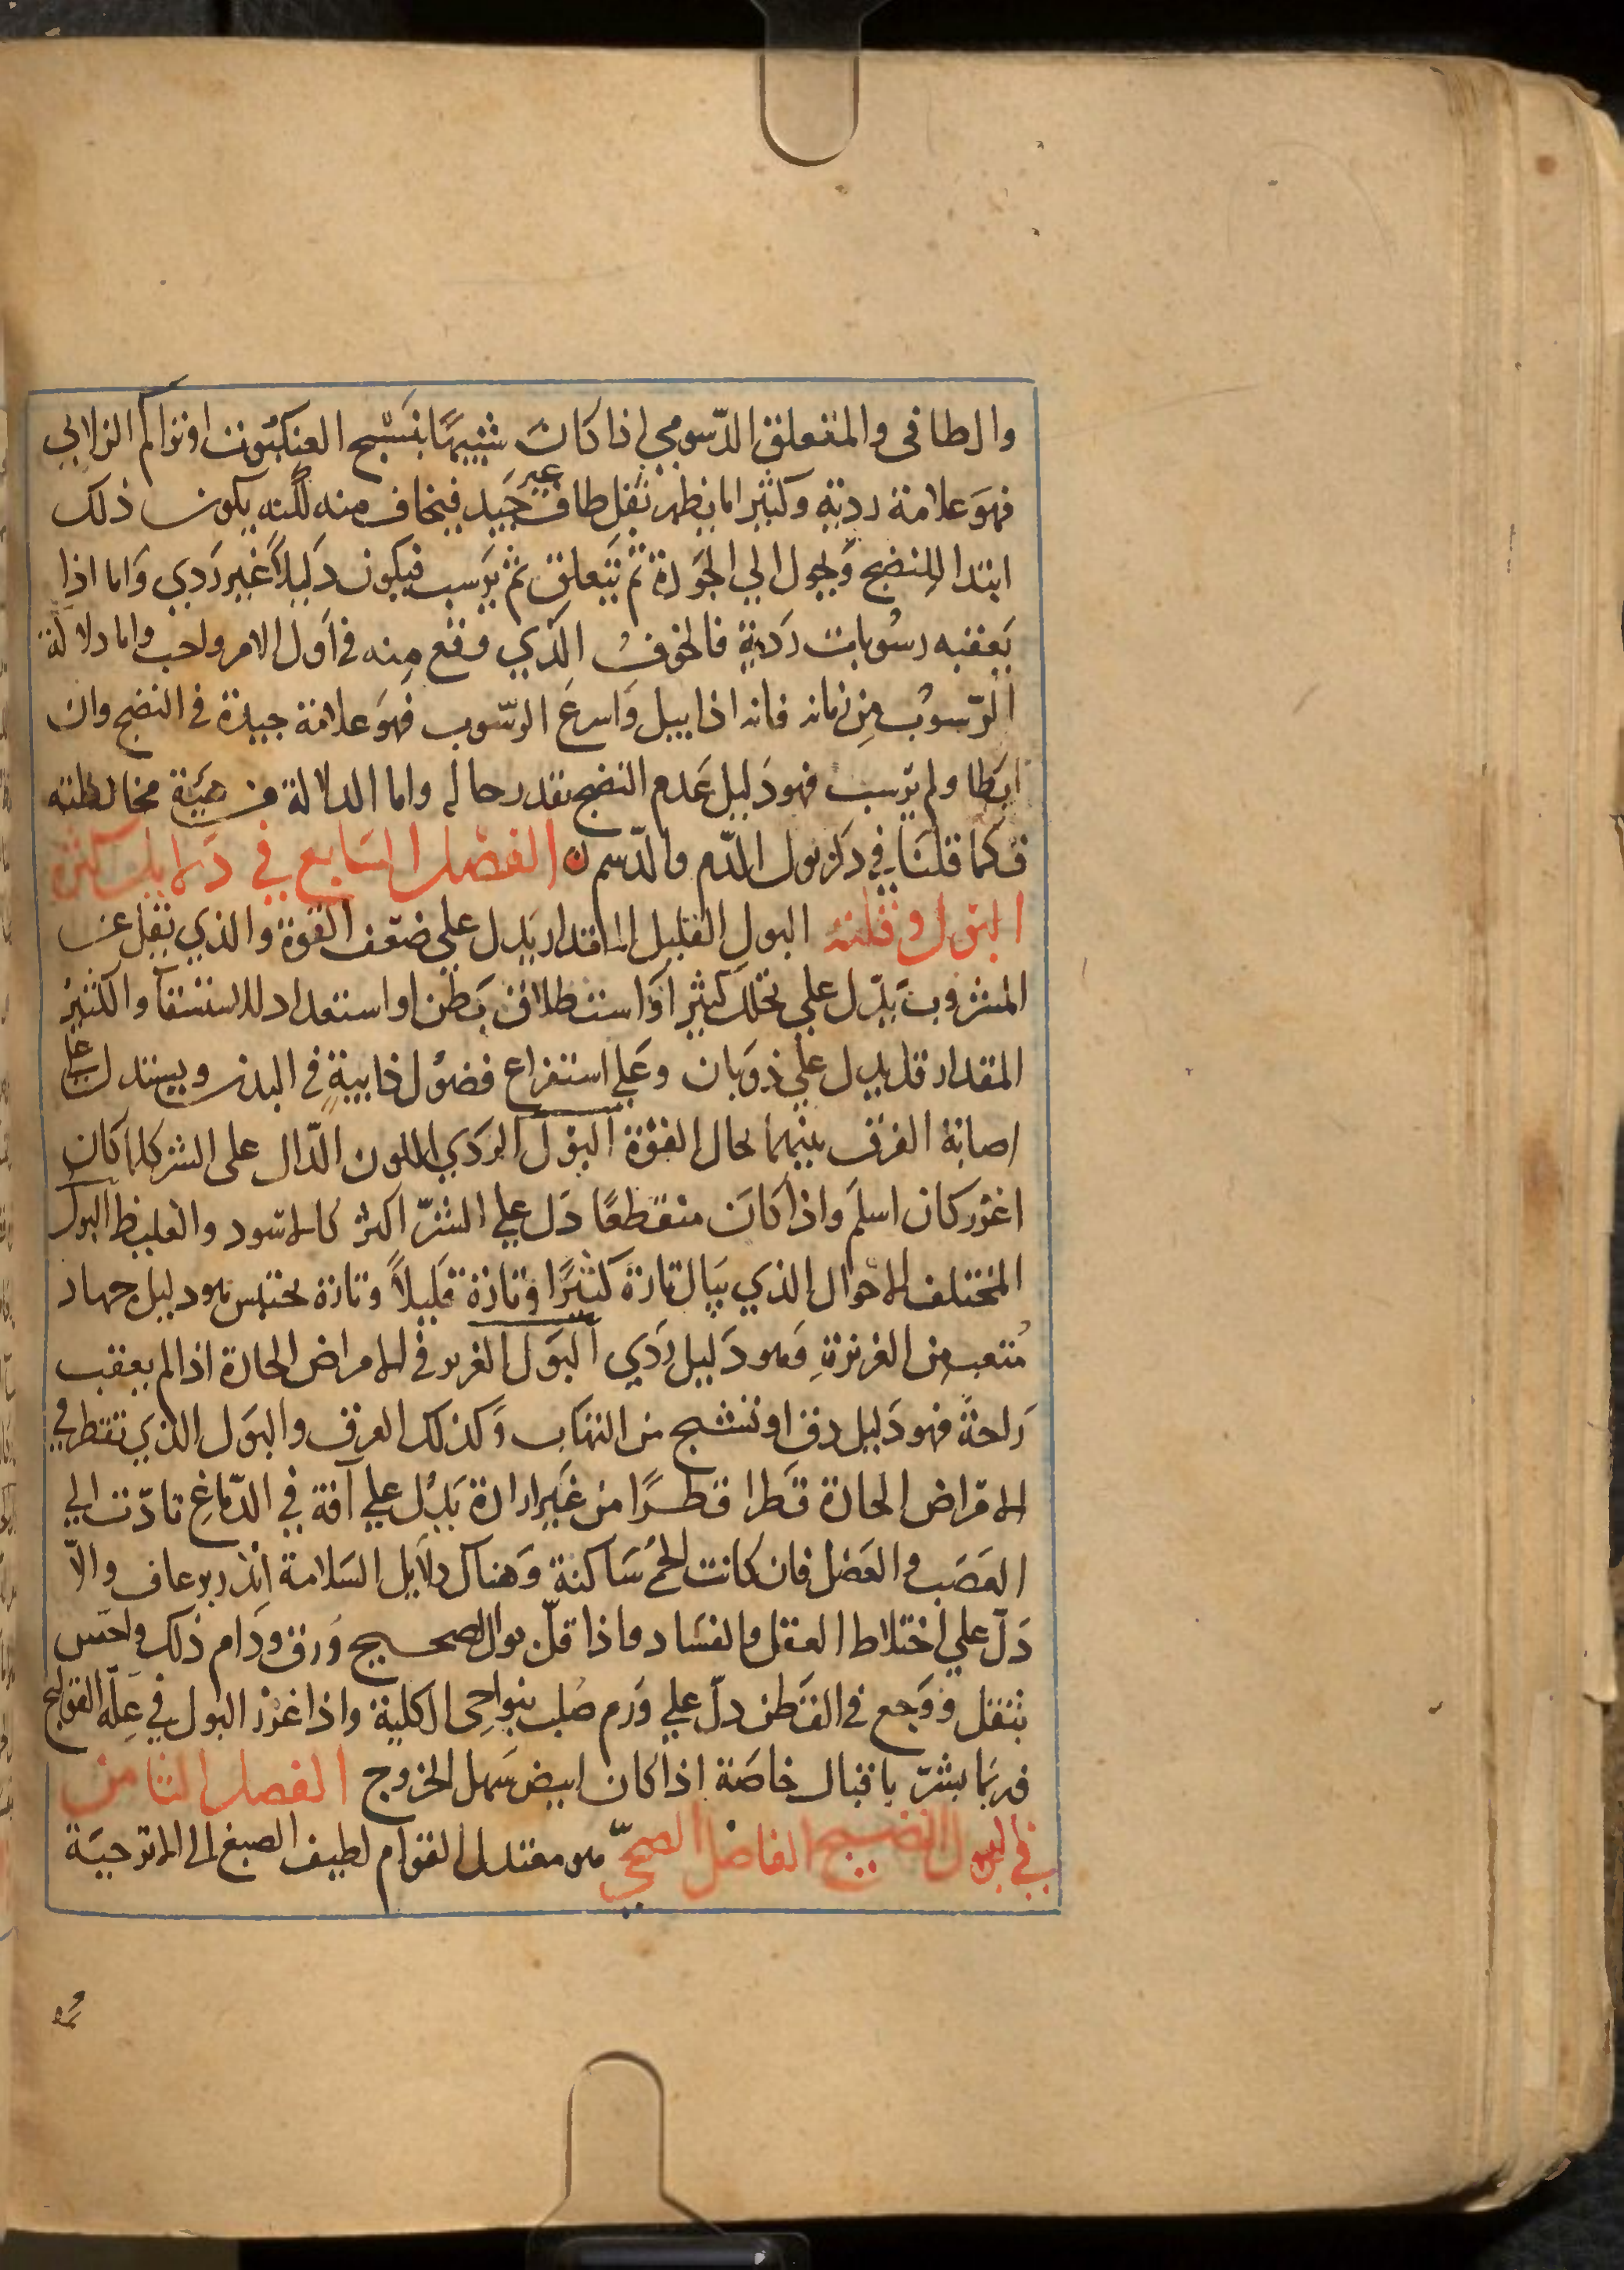 والطافى والمتعلق الدسومي اذا كان شبيها بنسج العنكبوت او تراكم الزلابي
فهو علامة ردية وكثيرا ما يظهر ثفل طاف غير جيد فيخاف منه لكنه يكون ذلك
ابتدا للنضج ويحول الي الجودة ثم يتعلق ثم يرسب فيكون دليلا غير ردي واما اذا
يعقبه رسوبات ردية فالخوف الذي وقع منه في اول الامر واجب واما دلالة
الرسوب من زمانه فانه اذا بيل واسرع الرسوب فهو علامة جيدة في النضج وان
ابطا ولم يرسب فهو دليل عدم النضج بقدر حاله واما الدلالة من هيئة مخالطته
فكما قلنا في ذكر بول الدم والدسم ن الفصل السابع في دلايل كثرة
البول وقلته البول القليل المقدار يدل علي ضعف القوة والذي يقل عن
المشروب يدل علي تحلل كثير او استطلاق بطن او استعداد للاستسقآ والكثير
المقدار قد يدل علي ذوبان وعلي استفراغ فضول ذايبة في البدن ويستدل علي
اصابة الفرق بينهما بحال القوة البول الردي اللون الدال على الشر كلما كان
اغزر كان اسلم واذا كان منقطعا دل علي الشر اكثر كالاسود والغليظ البول
المختلف الاحوال الذي يبال تارة كثيرا وتارة قليلا وتارة يحتبس هو دليل جهاد
متعب من الغريزة وهو دليل ردي البول الغزير في الامراض الحادة اذا لم يعقب
راحة فهو دليل دق او تشنج من التهاب وكذلك العرق والبول الذي تقطر في
الامراض الحادة قطرا قطرا من غير ارادة يدل علي آفة في الدماغ تادت الي
العصب والعضل فان كانت الحمي ساكنة وهناك دلايل السلامة انذر برعاف والا
دل علي اختلاط العقل والفساد واذا قل بول الصحيح ورق ودام ذلك واحس
بثقل ووجع في القطن دل علي ورم صلب بنواحي الكلية واذا غزر البول في علة القولنج
فربما بشر باقبال خاصة اذا كان ابيض سهل الخروج الفصل الثامن
في البول النضيج الفاضل الصحي هو معتدل القوام لطيف الصبغ الي الاترجية